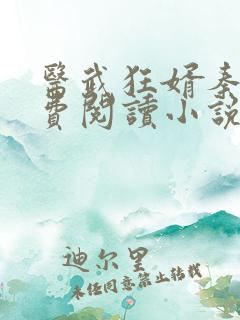 醫武狂婿秦
費閱讀小說
迪尔里
未经同意禁止转载